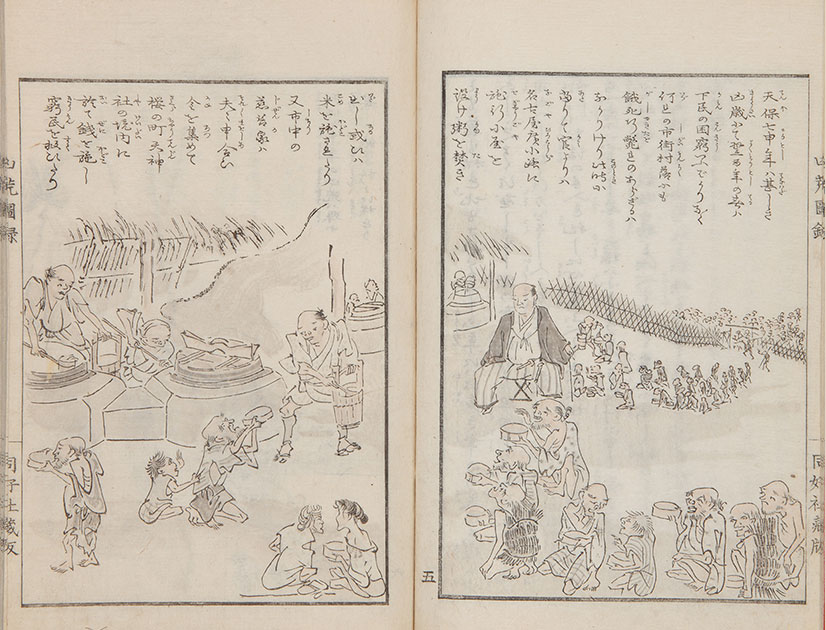 凶荒圖録
天保七申の年ハ甚しき
凶歳にて翌酉年の春ハ
下民の困窮
何との市街村落にも
餓死行斃とのあらざるハ
なかりけり此時に
当りて官よりハ
名古屋廣小路に
施行小屋を
設け粥を焚き
同好社蔵版
五
出し或ひハ
米を施されたり
又市中の
慈善家ハ
夫々申合ひ
金を集めて
桜の町天神
社の境内に
於て銭を施し
窮民を救ひたり
凶荒圖録
同好社蔵版